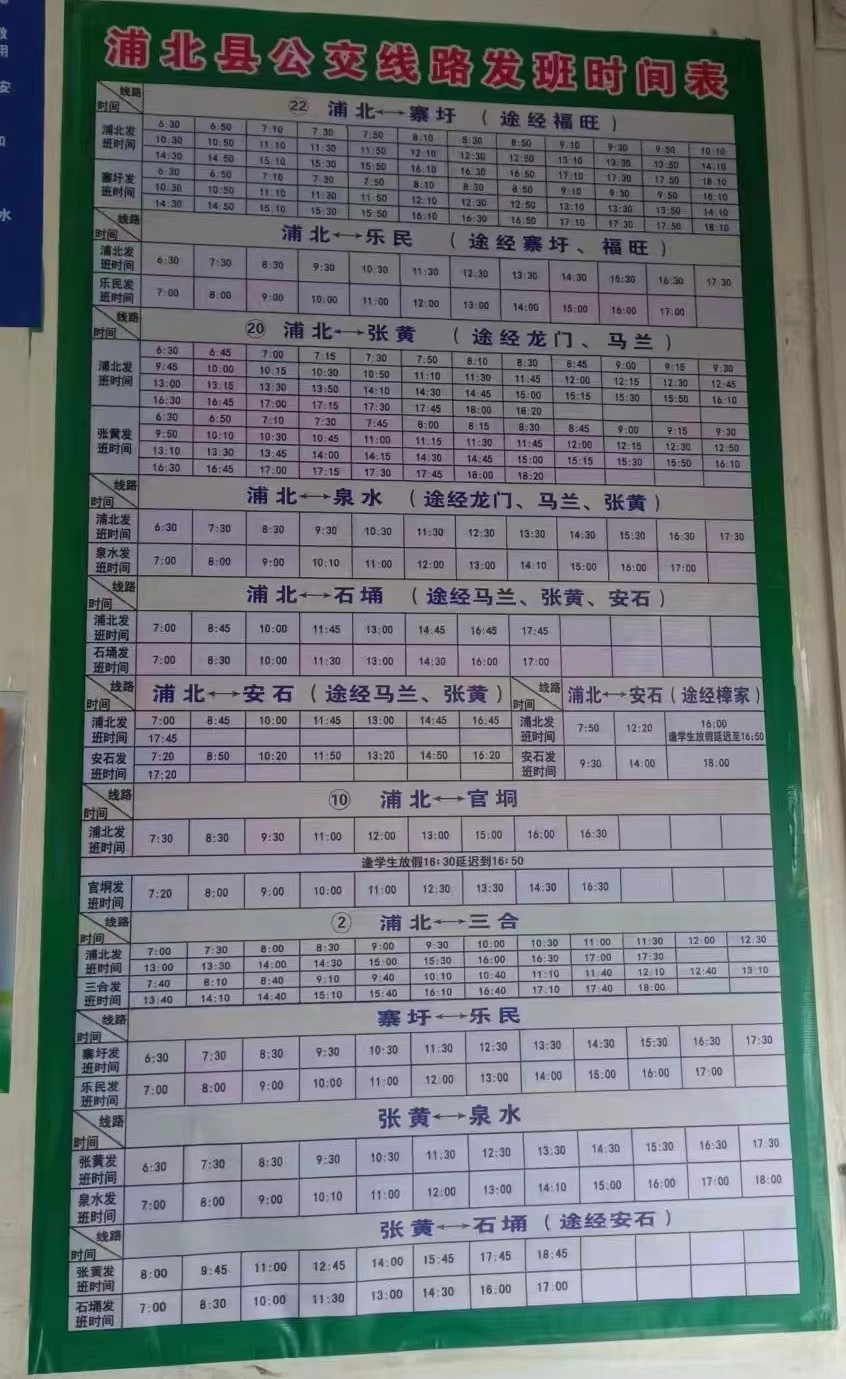 浦北县公交线路发班时间表
线路 时间 ㉒ 浦北←→寨圩 (途经福旺)
浦北发班时间 6:30 6:50 7:10 7:30 7:50 8:10 8:30 8:50 9:10 9:30 9:50 10:10
10:30 10:50 11:10 11:30 11:50 12:10 12:30 12:50 13:10 13:30 13:50 14:10
14:30 14:50 15:10 15:30 15:50 16:10 16:30 16:50 17:10 17:30 17:50 18:10
寨圩发班时间 6:30 6:50 7:10 7:30 7:50 8:10 8:30 8:50 9:10 9:30 9:50 10:10
10:30 10:50 11:10 11:30 11:50 12:10 12:30 12:50 13:10 13:30 13:50 14:10
14:30 14:50 15:10 15:30 15:50 16:10 16:30 16:50 17:10 17:30 17:50 18:10
线路 时间 浦北←→乐民 (途经寨圩、福旺)
浦北发班时间 6:30 7:30 8:30 9:30 10:30 11:30 12:30 13:30 14:30 15:30 16:30 17:30
乐民发班时间 7:00 8:00 9:00 10:00 11:00 12:00 13:00 14:00 15:00 16:00 17:00
线路 时间 ⑳ 浦北←→张黄 (途经龙门、马兰)
浦北发班时间 6:30 6:45 7:00 7:15 7:30 7:50 8:10 8:30 8:45 9:00 9:15 9:30
9:45 10:00 10:15 10:30 10:50 11:10 11:30 11:45 12:00 12:15 12:30 12:45
13:00 13:15 13:30 13:50 14:10 14:30 14:45 15:00 15:15 15:30 15:50 16:10
16:30 16:45 17:00 17:15 17:30 17:45 18:00 18:20
张黄发班时间 6:30 6:50 7:10 7:30 7:45 8:00 8:15 8:30 8:45 9:00 9:15 9:30
9:50 10:10 10:30 10:45 11:00 11:15 11:30 11:45 12:00 12:15 12:30 12:50
13:10 13:30 13:45 14:00 14:15 14:30 14:45 15:00 15:15 15:30 15:50 16:10
16:30 16:45 17:00 17:15 17:30 17:45 18:00 18:20
线路 时间 浦北←→泉水 (途经龙门、马兰、张黄)
浦北发班时间 6:30 7:30 8:30 9:30 10:30 11:30 12:30 13:30 14:30 15:30 16:30 17:30
泉水发班时间 7:00 8:00 9:00 10:10 11:00 12:00 13:00 14:10 15:00 16:00 17:00
线路 时间 浦北←→石埇 (途经马兰、张黄、安石)
浦北发班时间 7:00 8:45 10:00 11:45 13:00 14:45 16:45 17:45
石埇发班时间 7:00 8:30 10:00 11:30 13:00 14:30 16:00 17:00
线路 时间 浦北←→安石 (途经马兰、张黄)
浦北发班时间 7:00 8:45 10:00 11:45 13:00 14:45 16:45
17:45
安石发班时间 7:20 8:50 10:20 11:50 13:20 14:50 16:20
17:20
线路 时间 浦北←→安石 (途经樟家)
浦北发班时间 7:50 12:20 16:00
逢学生放假延迟至16:50
安石发班时间 9:30 14:00 18:00
线路 时间 ⑩ 浦北←→官垌
浦北发班时间 7:30 8:30 9:30 11:00 12:00 13:00 15:00 16:00 16:30
逢学生放假16:30延迟到16:50
官垌发班时间 7:20 8:00 9:00 10:00 11:00 12:30 13:30 14:30 16:30
线路 时间 ② 浦北←→三合
浦北发班时间 7:00 7:30 8:00 8:30 9:00 9:30 10:00 10:30 11:00 11:30 12:00 12:30
13:00 13:30 14:00 14:30 15:00 15:30 16:00 16:30 17:00 17:30
三合发班时间 7:40 8:10 8:40 9:10 9:40 10:10 10:40 11:10 11:40 12:10 12:40 13:10
13:40 14:10 14:40 15:10 15:40 16:10 16:40 17:10 17:40 18:00
线路 时间 寨圩←→乐民
寨圩发班时间 6:30 7:30 8:30 9:30 10:30 11:30 12:30 13:30 14:30 15:30 16:30 17:30
乐民发班时间 7:00 8:00 9:00 10:00 11:00 12:00 13:00 14:00 15:00 16:00 17:00
线路 时间 张黄←→泉水
张黄发班时间 6:30 7:30 8:30 9:30 10:30 11:30 12:30 13:30 14:30 15:30 16:30 17:30
泉水发班时间 7:00 8:00 9:00 10:10 11:00 12:00 13:00 14:10 15:00 16:00 17:00 18:00
线路 时间 张黄←→石埇 (途经安石)
张黄发班时间 8:00 9:45 11:00 12:45 14:00 15:45 17:45 18:45
石埇发班时间 7:00 8:30 10:00 11:30 13:00 14:30 16:00 17:00